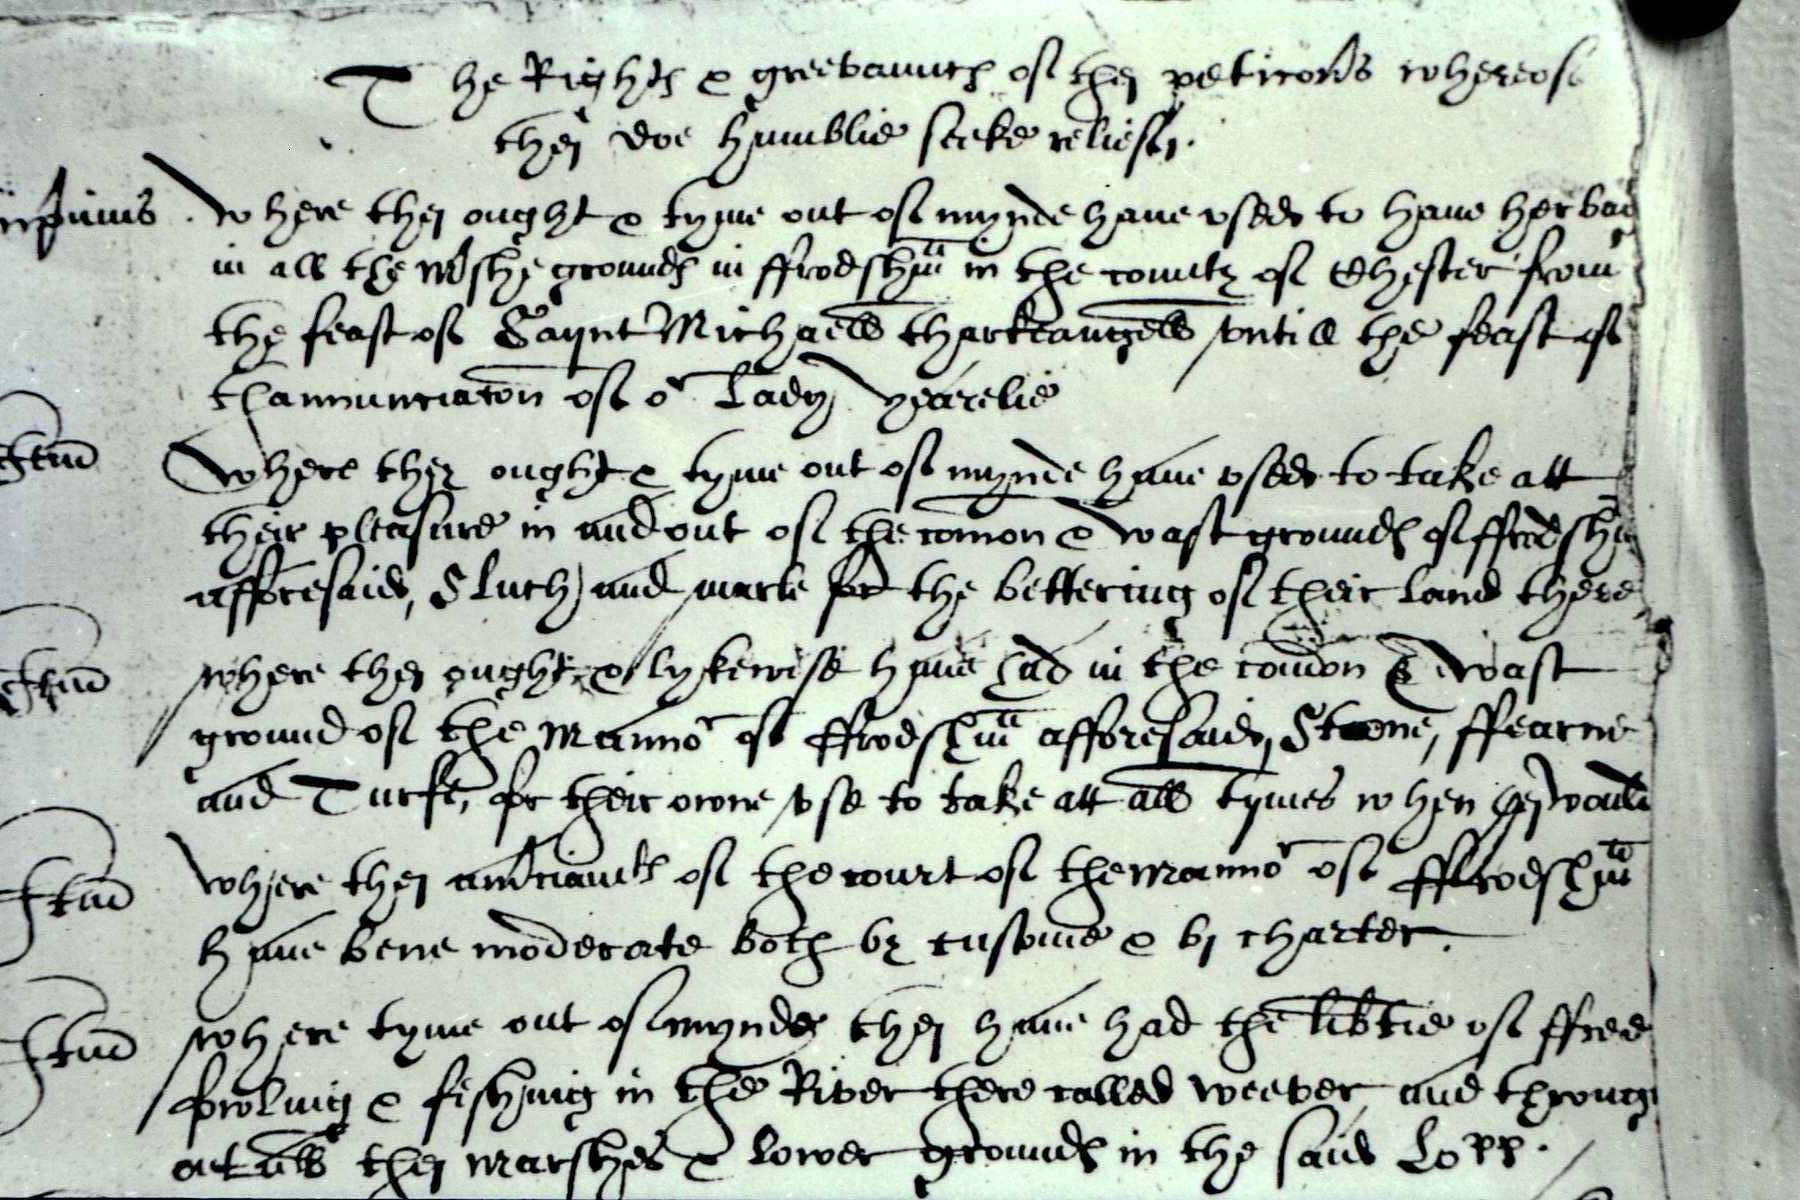 The Rights & greevaunces of thei peticons whereof
thei doe humblie seeke relief.
Inprimis where thei ought & tyme out of mynde have used to have herbag
in all the M'she grounds in ffrodshm in the county of Chester from
the feast of Saynt Michaell tharkeangell untill the feast of
thannunciacon of or Lady yearelie
Itm Where they ought & tyme out of mynde have used to take att
their pleasure in and out of the comon & wast grounds of ffrodshm
afforesaid, Sluch, and marle for the bettering of their land there
Itm where thei ought & lykewise have had in the comon & wast
ground of the mannor of ffrodshm afforesaid, Stone, ffearne
and Turfe, for their owne use to take att all tymes when thei would
Itm where thei of the court of the mannor of ffrodshm
have bene moderate both by custome & bi charter.
Itm where tyme out of mynde thei have had the libtie of ffree
fowling & fishing in the River there called weever and throug
out all thei marshes & lower grounds in the said Lopp.